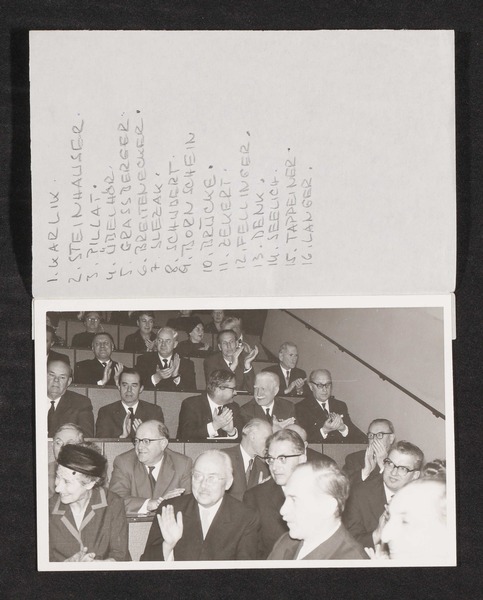 1. KARLIK.
2. STEINHAUSER.
3. PILLAT.
4. ÜBELHÖR.
5. GRASSBERGER.
6. BREITENECKER.
7 SLEZAK.
8. SCHUBERT.
9. DORNSCHEIN
10. BRÜCKE.
11. ZEKERT.
12. FELLINGER.
13. DENK.
14. SEELICH.
15. TAPPEINER.
16. LANGER.